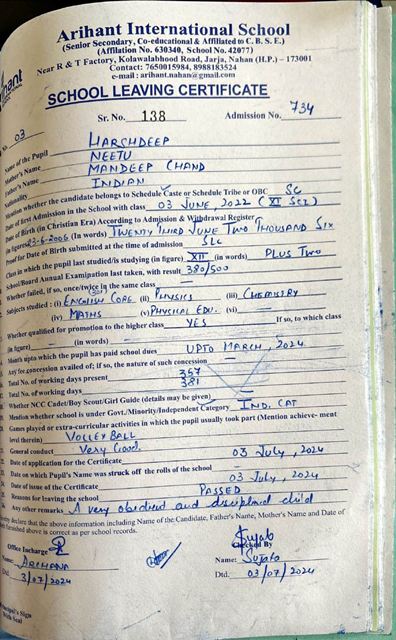 Arihant International School
(Senior Secondary, Co-educational & Affiliated to C. B. S. E.)
(Affiliation No. 630340, School No. 42077)
Near R & T Factory, Kolawalabhood Road, Jarja, Nahan (H.P.) – 173001
Contact: 7650015984, 8988183524
e-mail : arihant.nahan@gmail.com
SCHOOL LEAVING CERTIFICATE
Sr. No. 138 Admission No. 734
No 03
Name of the Pupil HARSHDEEP
Mother's Name NEETU
Father's Name MANDEEP CHAND
Nationality INDIAN
Mention whether the candidate belongs to Schedule Caste or Schedule Tribe or OBC SC
Date of first Admission in the School with class 03 JUNE, 2022 (XI SCI)
Date of Birth (in Christian Era) According to Admission & Withdrawal Register
in figures) 23-6-2006 (In words) TWENTY THIRD JUNE TWO THOUSAND SIX
Proof for Date of Birth submitted at the time of admission SLC
Class in which the pupil last studied/is studying (in figure) XII (in words) PLUS TWO
School/Board Annual Examination last taken, with result 380/500
Whether failed, if so, once/twice in the same class —
Subjects studied : (i) ENGLISH CORE (ii) PHYSICS (iii) CHEMISTRY
(iv) MATHS (v) PHYSICAL EDU. (vi) —
Whether qualified for promotion to the higher class YES If so, to which class
(in figure) — (in words) —
Month upto which the pupil has paid school dues UPTO MARCH, 2024
Any fee concession availed of; if so, the nature of such concession —
Total No. of working days present 357
Total No. of working days 381
Whether NCC Cadet/Boy Scout/Girl Guide (details may be given)
Mention whether school is under Govt./Minority/Independent Category IND. CAT
Games played or extra-curricular activities in which the pupil usually took part (Mention achieve- ment
level therein) VOLLEYBALL
General conduct Very Good
Date of application for the Certificate 03 July, 2024
Date on which Pupil's Name was struck off the rolls of the school —
Date of issue of the Certificate 03 July, 2024
Reasons for leaving the school PASSED
Any other remarks A very obedient and disciplined child
declare that the above information including Name of the Candidate, Father's Name, Mother's Name and Date of
furnished above is correct as per school records.
Office Incharge Checked By
Name: ARCHANA Name: Sujata
Dtd. 3/07/2024 Dtd. 03/07/2024
Principal's Sign
With Seal